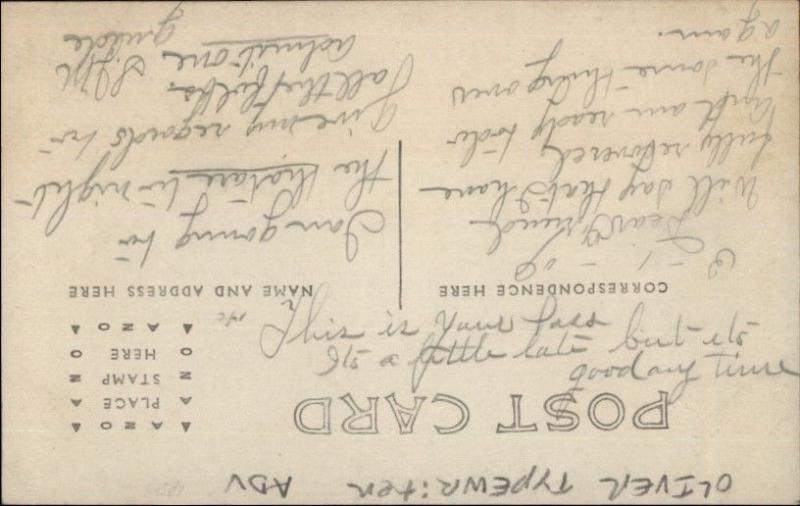 OLIVER TYPEWRITER ADV
POST CARD
AZO
PLACE
STAMP
HERE
AZO
This is your pass
It's a little late but it's
good any time
CORRESPONDENCE HERE
NAME AND ADDRESS HERE
Dear Friend
Will say that I have
fully recovered
and am ready to do
the same thing over
again.
I am going to
the theatare to night
Give my regards to
all the folks.
admit one